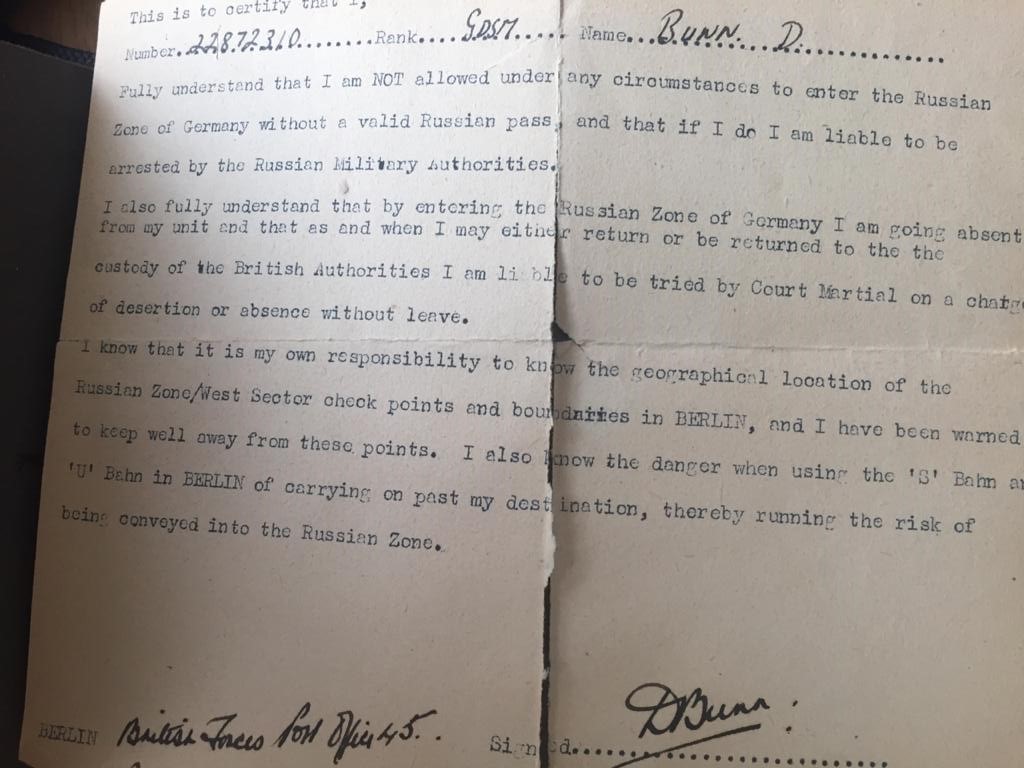 This is to certify that I,
Number.22872310........Rank....GDSM..... Name...BUNN. D..............
Fully understand that I am NOT allowed under any circumstances to enter the Russian
Zone of Germany without a valid Russian pass, and that if I do I am liable to be
arrested by the Russian Military Authorities.
I also fully understand that by entering the Russian Zone of Germany I am going absent
from my unit and that as and when I may either return or be returned to the the
custody of the British Authorities I am liable to be tried by Court Martial on a charge
of desertion or absence without leave.
I know that it is my own responsibility to know the geographical location of the
Russian Zone/West Sector check points and boundaries in BERLIN, and I have been warned
to keep well away from these points. I also know the danger when using the 'S' Bahn
'U' Bahn in BERLIN of carrying on past my destination, thereby running the risk of
being conveyed into the Russian Zone.
DBunn.
BERLIN British Forces Post Office 45. Signed..............................